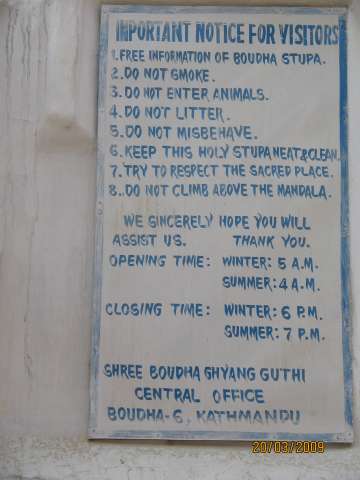 IMPORTANT NOTICE FOR VISITORS
1. FREE INFORMATION OF BOUDHA STUPA.
2. DO NOT SMOKE.
3. DO NOT ENTER ANIMALS.
4. DO NOT LITTER.
5. DO NOT MISBEHAVE.
6. KEEP THIS HOLY STUPA NEAT & CLEAN.
7. TRY TO RESPECT THE SACRED PLACE.
8. DO NOT CLIMB ABOVE THE MANDALA.
WE SINCERELY HOPE YOU WILL
ASSIST US. THANK YOU.
OPENING TIME: WINTER: 5 A.M.
SUMMER: 4 A.M.
CLOSING TIME: WINTER: 6 P.M.
SUMMER: 7 P.M.
SHREE BOUDHA GHYANG GUTHI
CENTRAL OFFICE
BOUDHA-6, KATHMANDU
20/03/2009